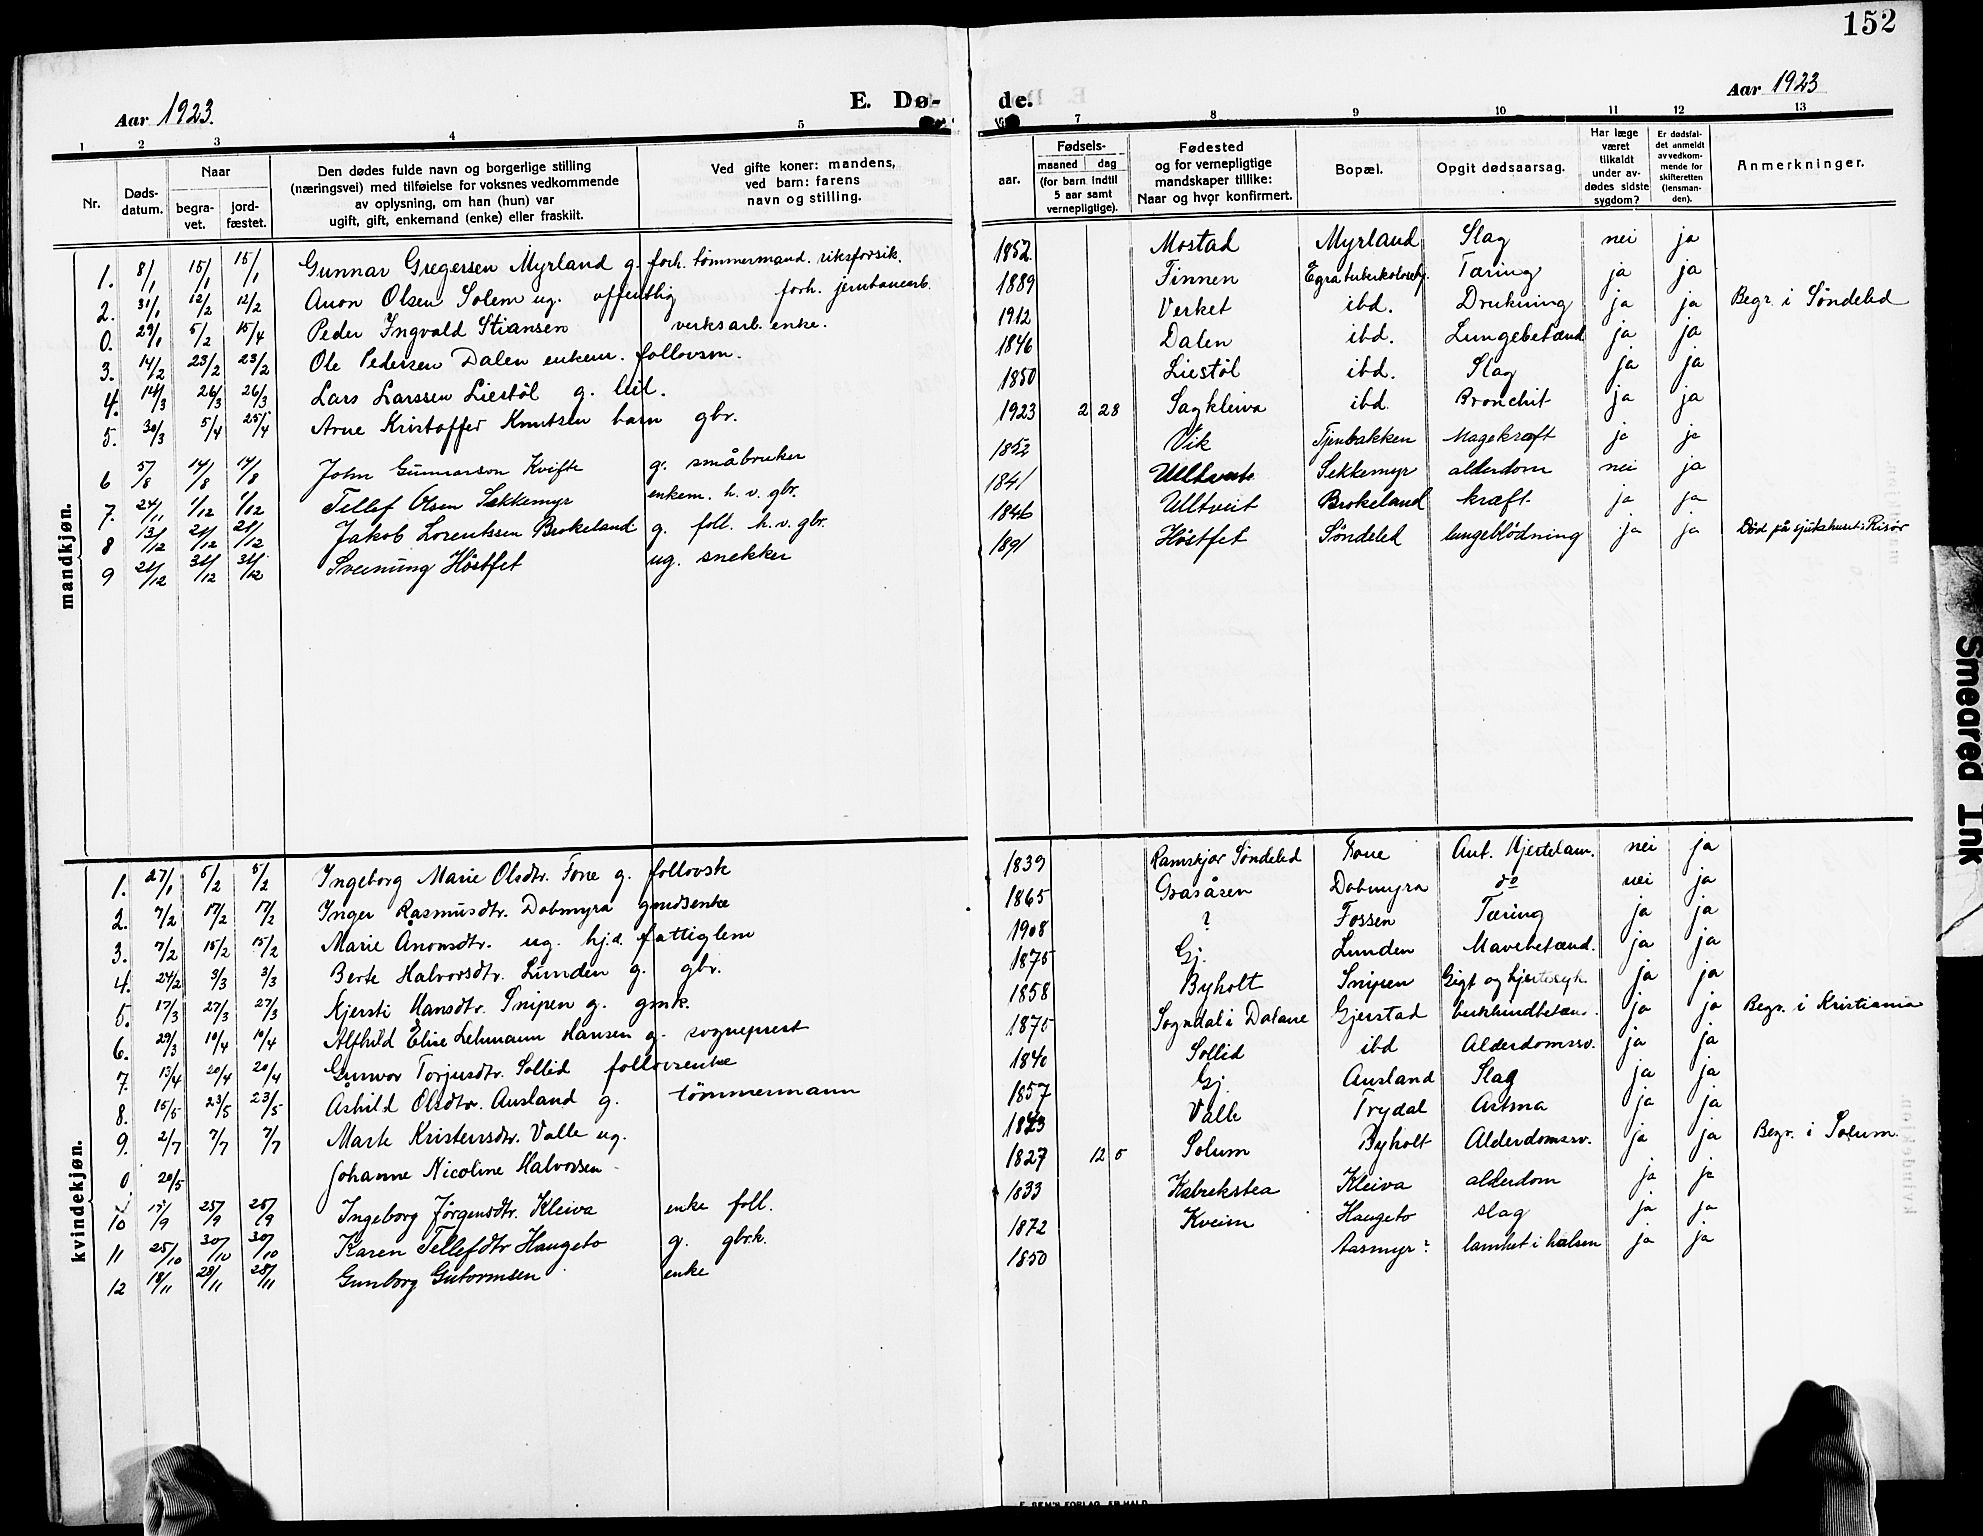 152
Aar 1923.
E. Dø-
de.
Aar 1923
1 2 3 4 5
7 8 9 10 11 12 13
Nr.
Døds-
datum.
Naar
begra-
vet.
jord-
fæstet.
Den dødes fulde navn og borgerlige stilling
(næringsvei) med tilføielse for voksnes vedkommende
av oplysning, om han (hun) var
ugift, gift, enkemand (enke) eller fraskilt.
Ved gifte koner: mandens,
ved barn: farens
navn og stilling.
aar.
Fødsels-
maaned dag
(for barn indtil
5 aar samt
vernepligtige).
Fødested
og for vernepligtige
mandskaper tillike:
Naar og hvor konfirmert.
Bopæl.
Opgit dødsaarsag.
Har læge
været
tilkaldt
under av-
dødes sidste
sygdom?
Er dødsfal-
det anmeldt
av vedkom-
mende for
skifteretten
(lensman-
den).
Anmerkninger.
mandkjøn.
1. 8/1 15/1 15/1 Gunnar Gregersen Myrland g. forh. tømmermand. riksforsik. 1852 Mostad Myrland Slag nei ja
2. 31/1 12/2 12/2 Anon Olsen Solem ug. offentlig forh. jernbanearb. 1889 Finnen Egra tuberkulosehj. Tæring ja ja
0. 29/1 5/2 15/4 Peder Ingvald Stiansen verksarb. enke. 1912 Verket ibd. Drukning ja ja Begr. i Søndeled
3. 14/2 23/2 23/2 Ole Pedersen Dalen enkem. follovsm. 1846 Dalen ibd. Lungebetænd ja ja
4. 14/3 26/3 26/3 Lars Larssen Liestøl g. leil. 1850 Liestøl ibd. Slag ja ja
5. 30/3 5/4 25/4 Arne Kristoffer Knutsen barn gbr. 1923 2 28 Sagkleiva ibd. Bronchit ja ja
6 5/8 14/8 14/8 John Gunnarson Kvifte g. småbruker 1852 Vik Tjenbakken Magekræft ja ja
7. 24/11 1/12 1/12 Tellef Olsen Sækkemyr enkem. h. v. gbr. 1841 Ulltveit Sekkemyr alderdom nei ja
8 13/12 21/12 21/12 Jakob Lorentssen Brokeland g. foll. h. v. gbr. 1846 Ulltveit Brokeland kræft ja ja
9 21/12 31/12 31/12 Sveinung Høstfet ug. snekker 1891 Høstfet Søndeled lungeblødning ja ja Død på sjukehuset i Risør
kvindekjøn.
1. 27/1 5/2 5/2 Ingeborg Marie Olsdtr. Fone g. follovsk 1839 Ramskjær Søndeled Fone Ant. Hjertelam. nei ja
2. 7/2 17/2 17/2 Inger Rasmusdtr. Dobmyra gmdsenke 1865 Gråsåsen Dobmyra do nei ja
3. 7/2 15/2 15/2 Marie Ånonsdtr. ug. hjd. fattiglem 1908 ? Fossen Tæring ja ja
4. 24/2 3/3 3/3 Berte Halvorsdtr. Lunden g. gbr. 1875 Gj. Lunden Mavebetænd. ja ja
5. 17/3 27/3 27/3 Kjersti Hansdtr. Snipen g. gmk. 1858 Byholt Snipen Gigt og hjertesyk. ja ja
6. 29/3 10/4 10/4 Alfhild Elise Lehmann Hansen g. sogneprest 1875 Sogndal i Dalane Gjerstad bukhindbetænd. ja ja Begr. i Kristiania
7. 13/4 20/4 20/4 Gunvor Torjusdtr. Sollid follovsenke 1840 Sollid ibd Alderdomssv. ja ja
8. 15/5 23/5 23/5 Åshild Olsdtr. Ausland g. tømmermann 1857 Gj. Ausland Slag ja ja
9. 2/7 7/7 7/7 Marte Kristensdtr. Valle ug. 1843 Valle Trydal Astma ja ja
0 20/5 Johanne Nicoline Halvorsen 1827 12 5 Solum Byholt Alderdomssv. ja ja Begr. i Solum.
10 15/9 25/9 25/9 Ingeborg Jørgensdtr. Kleiva enke foll. 1833 Kabrekstea Kleiva alderdom ja ja
11 25/10 30/10 30/10 Karen Tellefdtr Haugeto g. gbrk. 1872 Kveim Haugeto slag ja ja
12 18/11 28/11 28/11 Gunborg Gutormsen enke 1850 Aasmyr ? lamhet i halsen ja ja
Smeared Ink